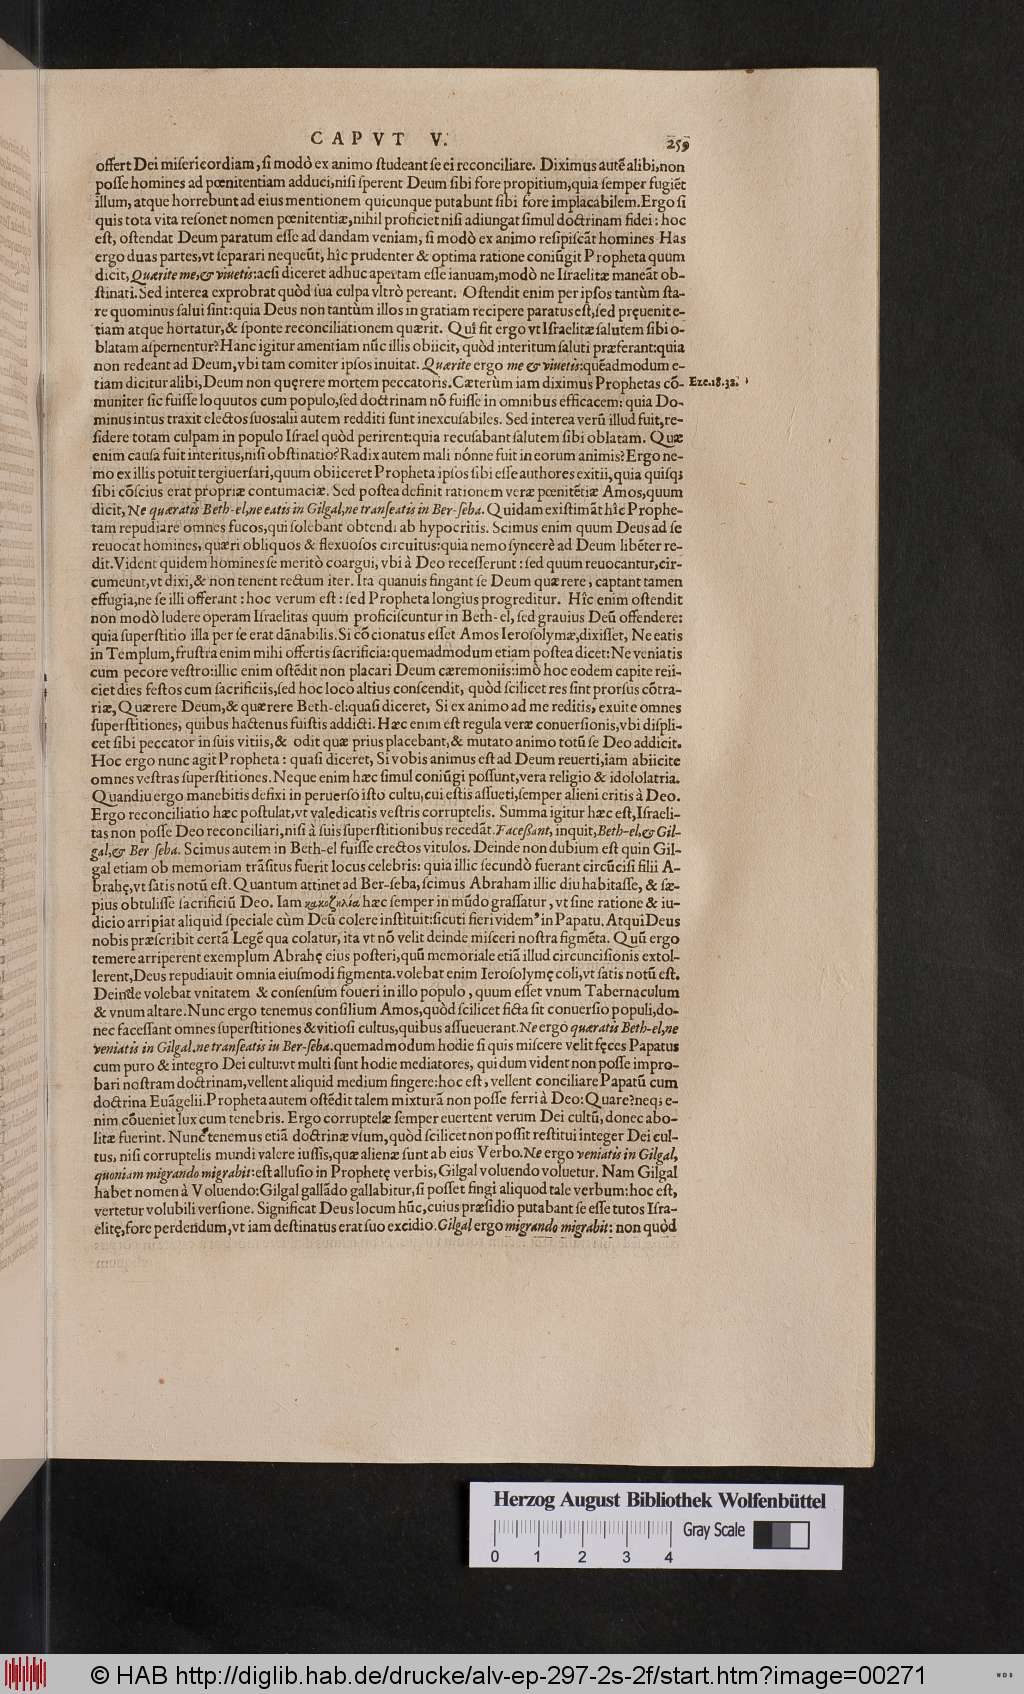 CAPVT V. 259
offert Dei misericordiam, si modò ex animo studeant se ei reconciliare. Diximus autē alibi, non
posse homines ad pœnitentiam adduci, nisi sperent Deum sibi fore propitium, quia semper fugiēt
illum, atque horrebunt ad eius mentionem quicunque putabunt sibi fore implacabilem. Ergo si
quis tota vita resonet nomen pœnitentiæ, nihil proficiet nisi adiungat simul doctrinam fidei: hoc
est, ostendat Deum paratum esse ad dandam veniam, si modò ex animo resipiscāt homines Has
ergo duas partes, vt separari nequeūt, hîc prudenter & optima ratione coniūgit Propheta quum
dicit, Quærite me, & viuetis: acsi diceret adhuc apertam esse ianuam, modò ne Israelitæ maneāt ob-
stinati. Sed interea exprobrat quòd sua culpa vltrò pereant. Ostendit enim per ipsos tantùm sta-
re quominus salui sint: quia Deus non tantùm illos in gratiam recipere paratus est, sed pręuenit e-
tiam atque hortatur, & sponte reconciliationem quærit. Quî fit ergo vt Israelitæ salutem sibi o-
blatam aspernentur? Hanc igitur amentiam nūc illis obiicit, quòd interitum saluti præferant: quia
non redeant ad Deum, vbi tam comiter ipsos inuitat. Quærite ergo me & viuetis: quēadmodum e-
tiam dicitur alibi, Deum non quęrere mortem peccatoris. Cæterùm iam diximus Prophetas cō-
Eze. 18. 32.
muniter sic fuisse loquutos cum populo, sed doctrinam nō fuisse in omnibus efficacem: quia Do-
minus intus traxit electos suos: alii autem redditi sunt inexcusabiles. Sed interea verū illud fuit, re-
sidere totam culpam in populo Israel quòd perirent: quia recusabant salutem sibi oblatam. Quæ
enim causa fuit interitus, nisi obstinatio? Radix autem mali nónne fuit in eorum animis? Ergo ne-
mo ex illis potuit tergiuersari, quum obiiceret Propheta ipsos sibi esse authores exitii, quia quisq;
sibi cōscius erat propriæ contumaciæ. Sed postea definit rationem veræ pœnitētiæ Amos, quum
dicit, Ne quæratis Beth-el, ne eatis in Gilgal, ne transeatis in Ber-seba. Quidam existimāt hîc Prophe-
tam repudiare omnes fucos, qui solebant obtendi ab hypocritis. Scimus enim quum Deus ad se
reuocat homines, quæri obliquos & flexuosos circuitus: quia nemo syncerè ad Deum libēter re-
dit. Vident quidem homines se meritò coargui, vbi à Deo recesserunt: sed quum reuocantur, cir-
cumeunt, vt dixi, & non tenent rectum iter. Ita quanuis fingant se Deum quærere, captant tamen
effugia, ne se illi offerant: hoc verum est: sed Propheta longius progreditur. Hîc enim ostendit
non modò ludere operam Israelitas quum proficiscuntur in Beth-el, sed grauius Deū offendere:
quia superstitio illa per se erat dānabilis. Si cōcionatus esset Amos Ierosolymæ, dixisset, Ne eatis
in Templum, frustra enim mihi offertis sacrificia: quemadmodum etiam postea dicet: Ne veniatis
cum pecore vestro: illic enim ostēdit non placari Deum cæremoniis: imò hoc eodem capite reii-
ciet dies festos cum sacrificiis, sed hoc loco altius conscendit, quòd scilicet res sint prorsus cōtra-
riæ, Quærere Deum, & quærere Beth-el: quasi diceret, Si ex animo ad me reditis, exuite omnes
superstitiones, quibus hactenus fuistis addicti. Hæc enim est regula veræ conuersionis, vbi displi-
cet sibi peccator in suis vitiis, & odit quæ prius placebant, & mutato animo totū se Deo addicit.
Hoc ergo nunc agit Propheta: quasi diceret, Si vobis animus est ad Deum reuerti, iam abiicite
omnes vestras superstitiones. Neque enim hæc simul coniūgi possunt, vera religio & idololatria.
Quandiu ergo manebitis defixi in peruerso isto cultu, cui estis assueti, semper alieni eritis à Deo.
Ergo reconciliatio hæc postulat, vt valedicatis vestris corruptelis. Summa igitur hæc est, Israeli-
tas non posse Deo reconciliari, nisi à suis superstitionibus recedāt. Facessant, inquit, Beth-el, & Gil-
gal, & Ber seba. Scimus autem in Beth-el fuisse erectos vitulos. Deinde non dubium est quin Gil-
gal etiam ob memoriam trāsitus fuerit locus celebris: quia illic secundò fuerant circūcisi filii A-
brahę, vt satis notū est. Quantum attinet ad Ber-seba, scimus Abraham illic diu habitasse, & sæ-
pius obtulisse sacrificiū Deo. Iam κακοζηλία hæc semper in mūdo grassatur, vt sine ratione & iu-
dicio arripiat aliquid speciale cùm Deū colere instituit: sicuti fieri videm' in Papatu. Atqui Deus
nobis præscribit certā Legē qua colatur, ita vt nō velit deinde misceri nostra figmēta. Quū ergo
temere arriperent exemplum Abrahę eius posteri, quū memoriale etiā illud circuncisionis extol-
lerent, Deus repudiauit omnia eiusmodi figmenta. volebat enim Ierosolymę coli, vt satis notū est.
Deinde volebat vnitatem & consensum foueri in illo populo, quum esset vnum Tabernaculum
& vnum altare. Nunc ergo tenemus consilium Amos, quòd scilicet ficta sit conuersio populi, do-
nec facessant omnes superstitiones & vitiosi cultus, quibus assueuerant. Ne ergo quæratis Beth-el, ne
veniatis in Gilgal, ne transeatis in Ber-seba. quemadmodum hodie si quis miscere velit fęces Papatus
cum puro & integro Dei cultu: vt multi sunt hodie mediatores, qui dum vident non posse impro-
bari nostram doctrinam, vellent aliquid medium fingere: hoc est, vellent conciliare Papatū cum
doctrina Euāgelii. Propheta autem ostēdit talem mixturā non posse ferri à Deo: Quare? neq; e-
nim cōueniet lux cum tenebris. Ergo corruptelæ semper euertent verum Dei cultū, donec abo-
litæ fuerint. Nunc tenemus etiā doctrinæ vsum, quòd scilicet non possit restitui integer Dei cul-
tus, nisi corruptelis mundi valere iussis, quæ alienæ sunt ab eius Verbo. Ne ergo veniatis in Gilgal,
quoniam migrando migrabit: est allusio in Prophetę verbis, Gilgal voluendo voluetur. Nam Gilgal
habet nomen à Voluendo: Gilgal gallādo gallabitur, si posset fingi aliquod tale verbum: hoc est,
vertetur volubili versione. Significat Deus locum hūc, cuius præsidio putabant se esse tutos Isra-
elitę, fore perdendum, vt iam destinatus erat suo excidio. Gilgal ergo migrando migrabit: non quòd
Herzog August Bibliothek Wolfenbüttel
Gray Scale
0 1 2 3 4
© HAB http://diglib.hab.de/drucke/alv-ep-297-2s-2f/start.htm?image=00271